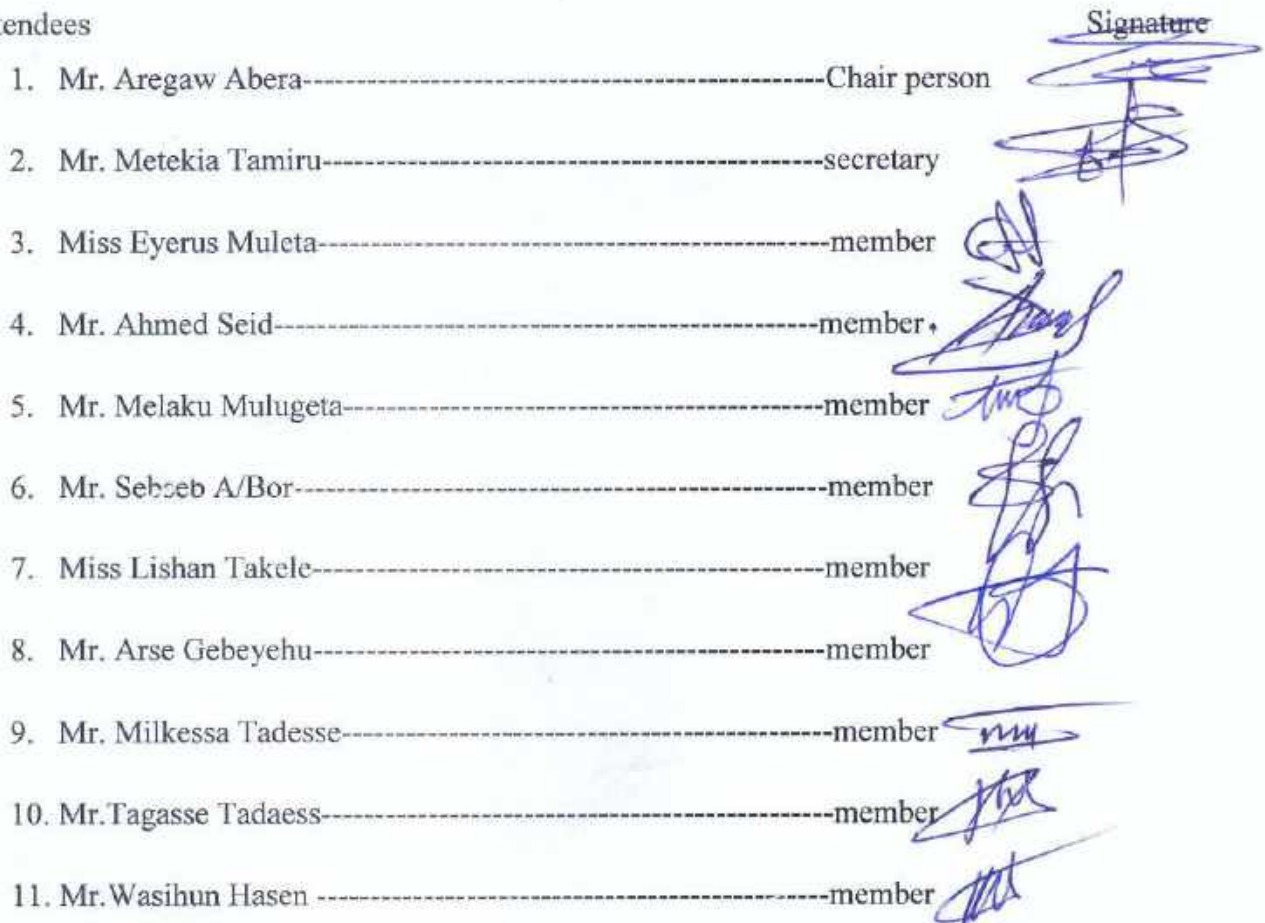 tendees Signature
1. Mr. Aregaw Abera------------------------------------------------------------Chair person
2. Mr. Metekia Tamiru----------------------------------------------------------secretary
3. Miss Eyerus Muleta----------------------------------------------------------member
4. Mr. Ahmed Seid--------------------------------------------------------------member.
5. Mr. Melaku Mulugeta-------------------------------------------------------member
6. Mr. Sebseb A/Bor------------------------------------------------------------member
7. Miss Lishan Takele----------------------------------------------------------member
8. Mr. Arse Gebeyehu----------------------------------------------------------member
9. Mr. Milkessa Tadesse-------------------------------------------------------member
10. Mr.Tagasse Tadaess---------------------------------------------------------member
11. Mr.Wasihun Hasen ---------------------------------------------------------member